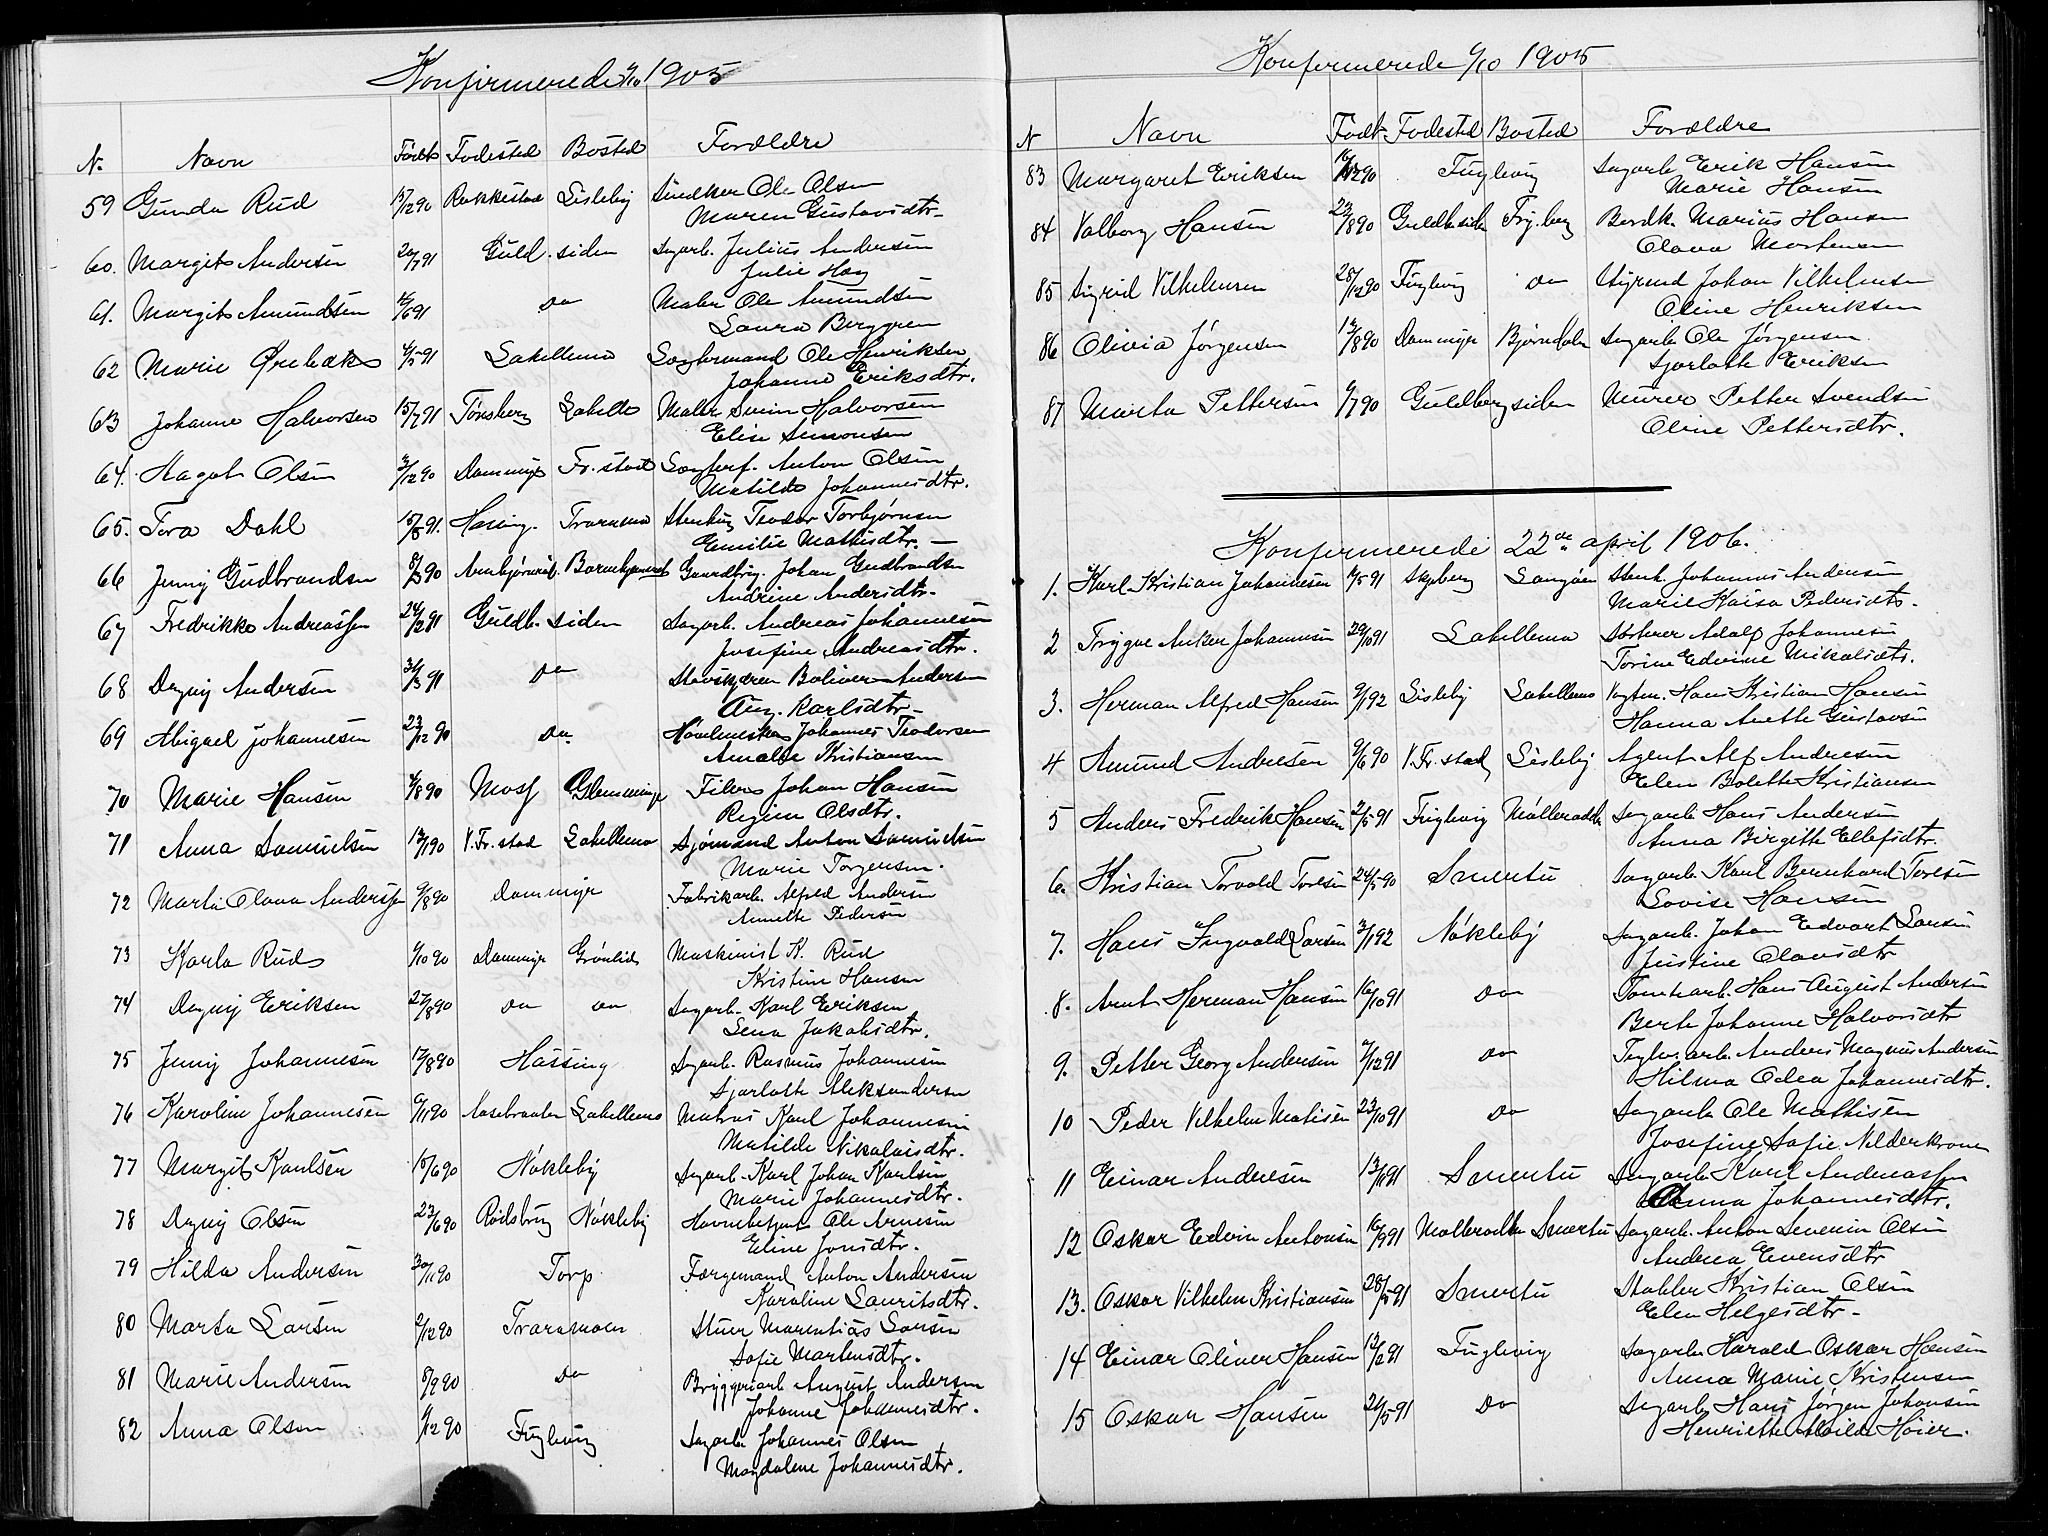 Konfirmerede 1/10 1905
N. Navn Födt Fodested Bosted Foreldre
59 Gunda Rud 17/12 90 Rakkestad Lisleby Snedker Ole Olsen
Maren Gustavsdtr.
60. Margit Andersen 20/7 91 Guldb. siden Sagarb. Julius Andersen
Julie Høy
61. Margit Amundsen /6 91 Do Maler Ole Amundsen
Laura Berggren
62 Marie Ørebæk 4/5 91 Labellemo Sagformand Ole Henriksen
Johanne Eriksdtr.
63 Johanne Halvorsen 15/7 91 Tønsberg Labelle Maler Halvorsen
Elise Simonsen
64. Hagot Olsen 3/12 90 Dammyr Fr. stad Anton Olsen
Matilde Johannesdtr.
65. Tora Dahl 15/8 91. Hassing. Traramo Stenhug Teodor Torbjørnsen
Emilie Mathisdtr. —
66 Jenny Gudbrandsen 8/3 90 Barnehjemmet Gaardbrg. Johan Gudbrandsen
Andrine Andersdtr.
67 Fredrikke Andreassen 24/2 91 Guldb. siden Sagarb. Andreas Johannesen
Josefine Andreasdtr.
68 Dagny Andersen 31/3 91 Do Andersen
Aug. Karlsdtr.
69 Abigael Johannesen 23/12 90 Do. Høvlmester Johannes Teodorsen
Amalie Kristiansen
70 Marie Hansen 4/8 90 Moss Glemminge Filer Johan Hansen
Regine Olsdtr.
71 Anna Samuelsen 13/1 90 V. Fr. stad Labellemo Sjømand Anton Samuelsen
Marie Torgersen.
72 Marte Olava Anderssen 9/8 90 Dammyr Fabrikarb. Alfred Andersen
Annette Pedersen
73 Karla Rud 1/10 90 Dammyr Grønlid Maskinist K. Rud
Kristine Hansen
74 Dagny Eriksen 27/8 90 Do Do Sagarb. Karl Eriksen
Lena Jakobsdtr.
75 Jenny Johannesen 17/8 90 Hassing Sagarb. Rasmus Johannesen
Sjarlotte Aleksandersen
76 Karoline Johannesen 9/11 90 Aasebraaten Labellemo Matros Karl Johannesen
Matilde Nikolaisdtr.
77 Margit Karlsen 15/6 90 Nøkleby Sagarb. Karl Johan Karlsen
Marie Johannesdtr.
78 Dagny Olsen 23/6 90 Roilsbrug Nøkleby Havnebetjent Ole Arnesen
Eline Jonsdtr.
79 Hilda Andersen 30/11 90 Torp Færgemand Anton Andersen
Karoline Lauritsdtr.
80 Marta Larsen 2/12 90 Traramoen Stuer Marentius Larsen
Sofie Martensdtr.
81 Marie Andersen 8/9 90 Do Bryggeriarb August Andersen
Johanne Johannesdtr.
82 Anna Olsen /12 90 Fuglevig Sagarb Johannes Olsen
Magdalene Johannesdtr.
Konfirmerede 1/10 1905
N Navn Födt Fodested Bosted Foreldre
83 Margaret Eriksen 16/ 90 Fuglevig Sagarb Erik Hansen
Marie Hansen
84 Valborg Hansen 23/8 90 Guldb.siden Fuglevig Bordk. Marius Hansen
Olava Mortensen
85 Sigrid Vilhelmsen 28/12 90 Fuglevig Do Styrmd Johan Vilhelmsen
Oline Henriksen
86 Olivia Jørgensen 17/8 90 Dammyr Bjørndalen Sagarb Ole Jørgensen
Sjarlotte Eriksen
87 Marta Pettersen 9/7 90 Guldbergsiden Murer Petter Svendsen
Oline Pettersdtr.
Konfirmerede 22de april 1906.
1. Karl Kristian Johannesen /5 91 Skjeberg Langøen Stenh. Johannes Andersen
Marie Kaisa Pedersdtr.
2 Trygve Anker Johannesen 29/10 91 Labellemo Adolf Johannesen
Torine Edvine Mikalsdtr.
3. Herman Alfred Hansen 9/1 92 Lisleby Labellemo Hans Kristian Hansen
Hanna Anette Gustavsen
4 Amund Andresen 9/6 90 V. Fr. stad Lisleby Agent Alf Andresen
Elen Bolette Kristiansen
5 Anders Fredrik Hansen 2/5 91 Fuglevig Mølleradden Sagarb Hans Andersen
Anna Birgitte Ellefsdtr.
6. Kristian Torvald Toresen 24/5 90 Smertu Sagarb Karl Bernhard Toresen
Lovise Hansen
7. Hans Ingvald Larsen 3/1 92 Nøkleby Sagarb. Johan Edvart Larsen
Justine Olausdtr
8. Arnt Herman Hansen 16/10 91 Do Tomtearb. Hans August Andersen
Berte Johanne Halvorsdtr
9. Petter Georg Andersen /12 91 Do Teglv. arb. Anders Magnus Andersen
Hilma Odea Johannesdtr.
10 Peder Vilhelm Matisen 23/10 91 Do Sagarb Ole Mathisen
Josefine Sofie
11 Einar Andresen 13/1 91 Smertu Sagarb Karl Andreassen
Anna Johannesdtr.
12 Oskar Edvin Antonsen 16/9 91 Mølleradden Smertu Sagarb. Anton Severin Olsen
Andrea Evensdtr
13. Oskar Vilhelm Kristiansen 28/5 91 Smertu Stabler Kristian Olsen
Elen Helgesdtr
14 Einar Oliver Hansen 12/2 91 Fuglevig Sagarb Harald Oskar Hansen
Anna Marie Kristensen
15 Oskar Hansen 24/5 91 Do Sagarb Hans Jørgen Johansen
Henriette Alvilde Høier.